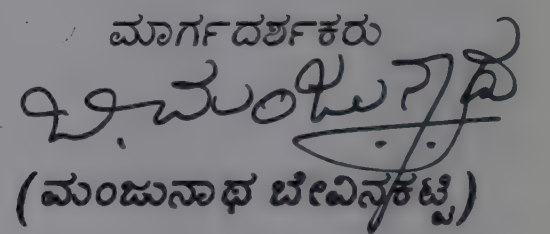 ಮಾರ್ಗದರ್ಶಕರು
ಬಿ. ಮಂಜುನಾಥ
(ಮಂಜುನಾಥ ಬೇವಿನಕಟ್ಟಿ)